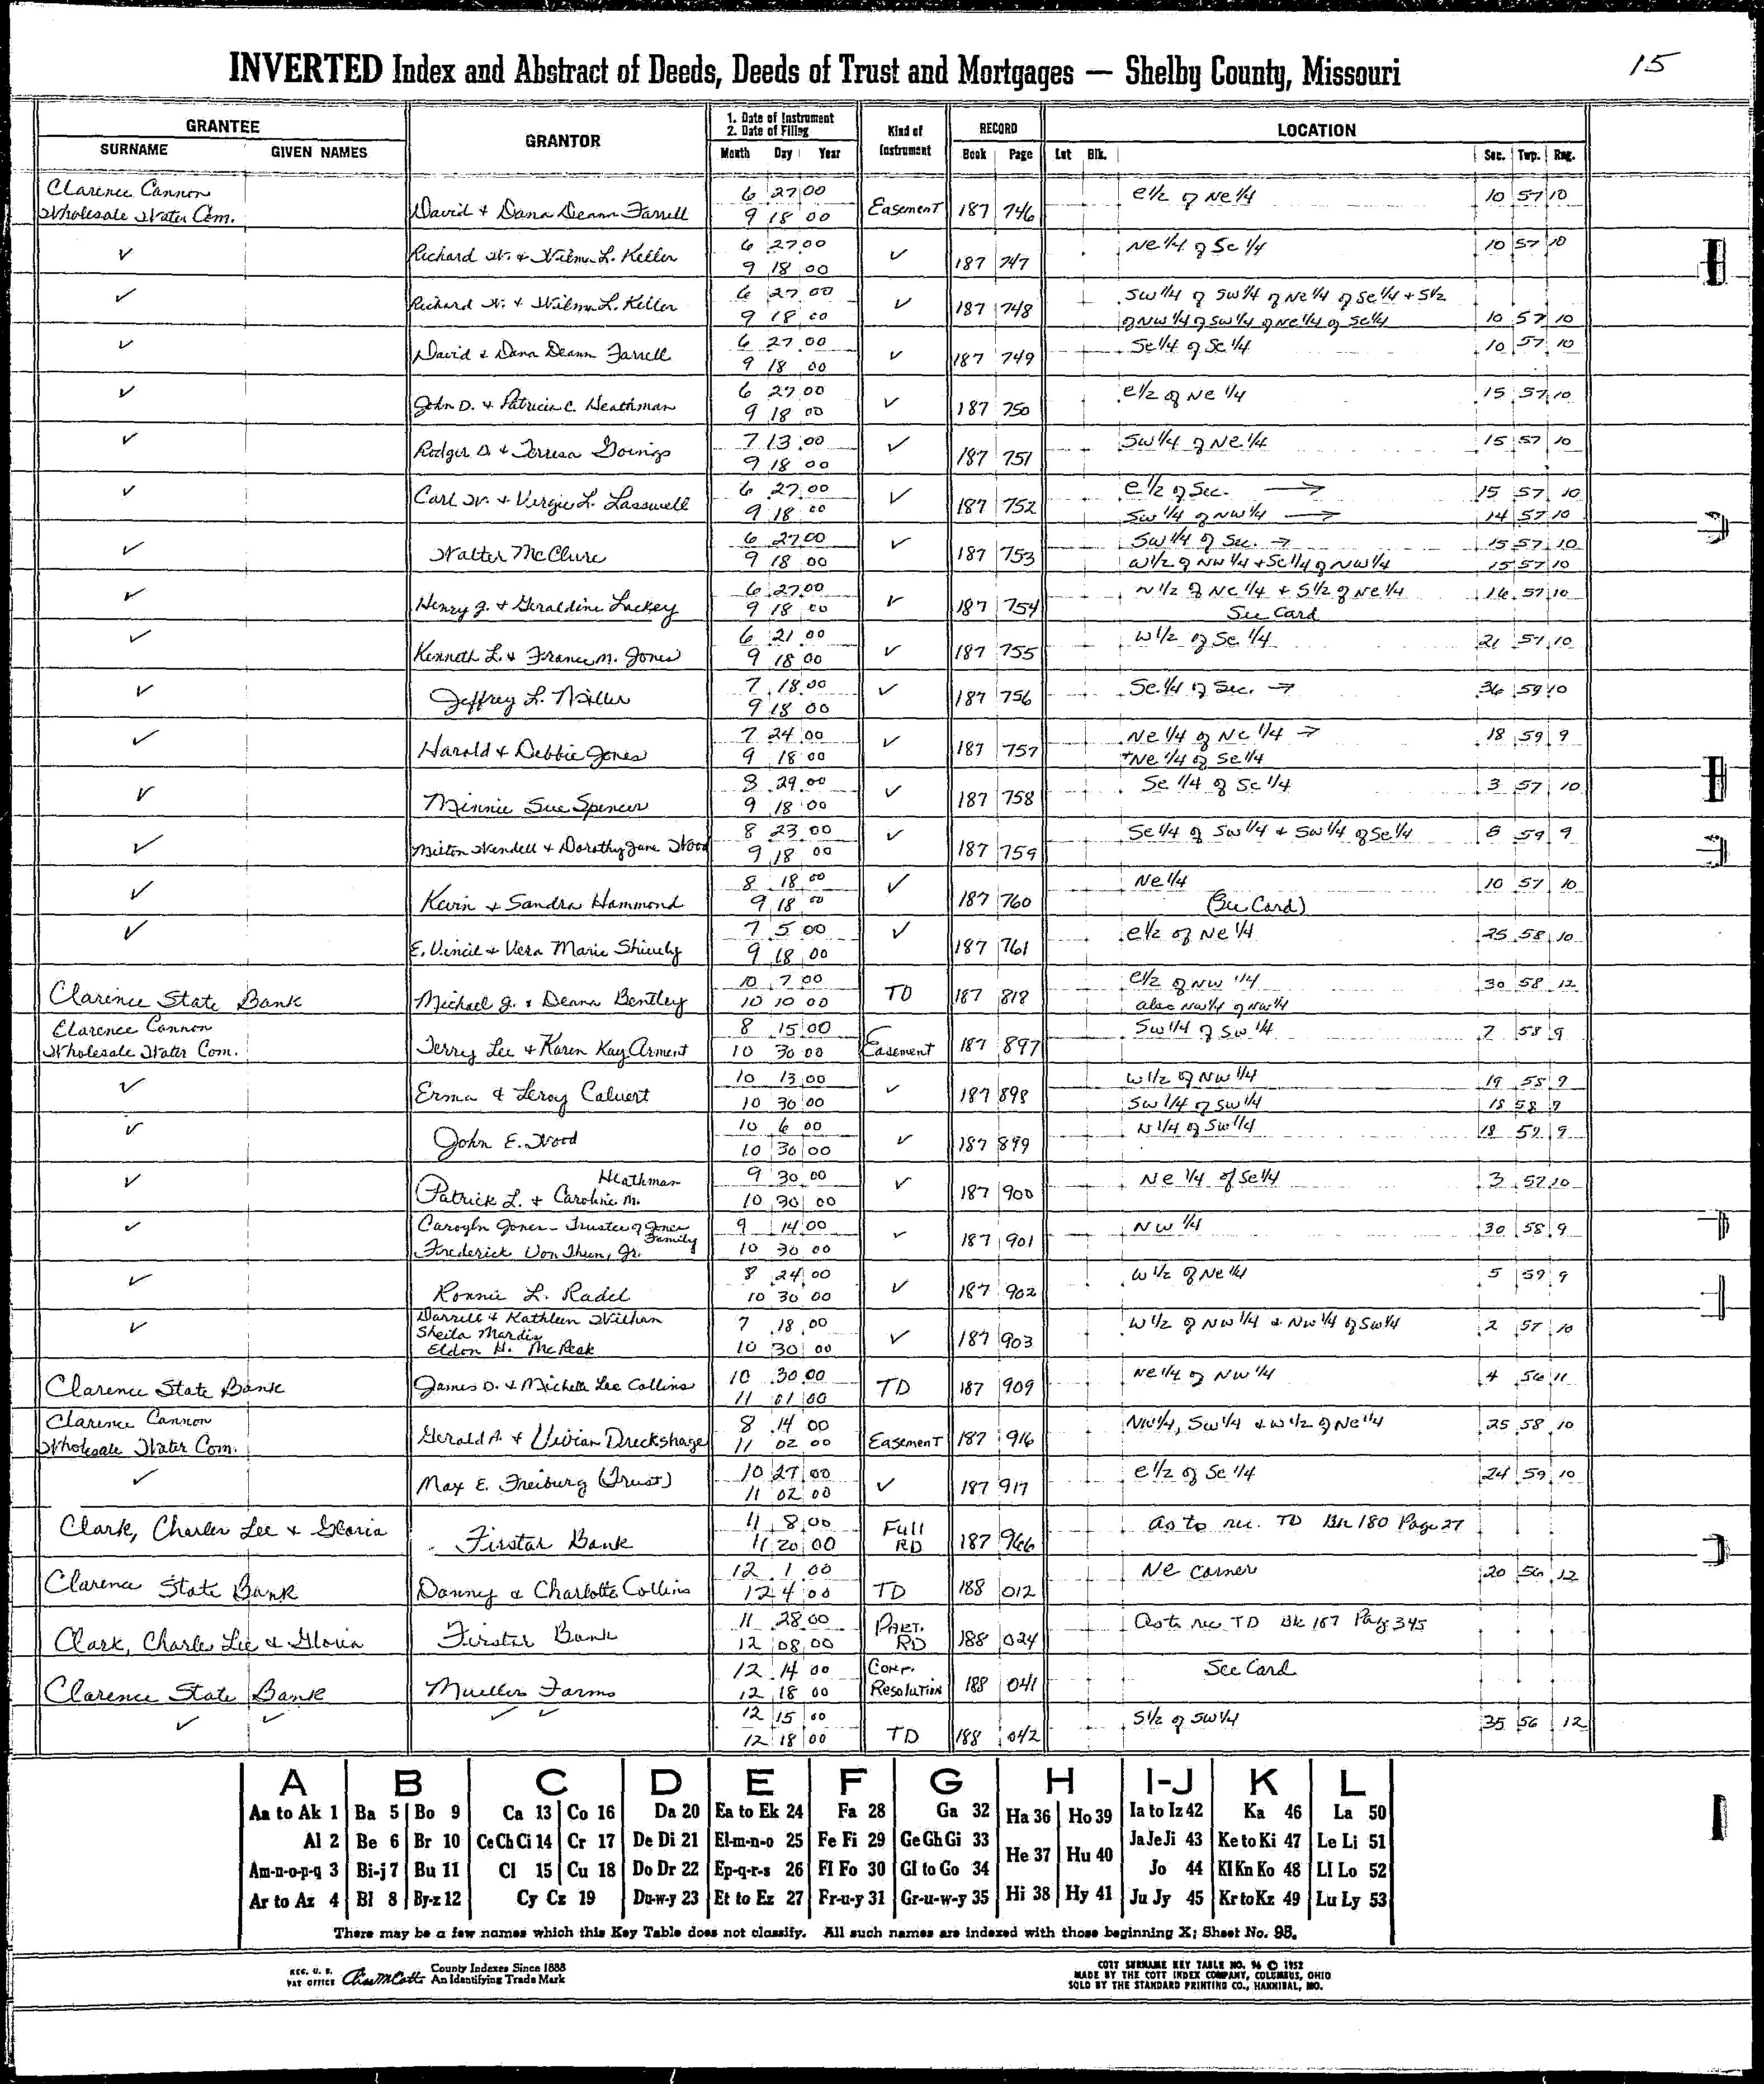 15
INVERTED Index and Abstract of Deeds, Deeds of Trust and Mortgages — Shelby County, Missouri
GRANTEE GRANTOR 1. Date of Instrument 2. Date of Filing Kind of Instrument RECORD LOCATION
SURNAME GIVEN NAMES Month Day Year Book Page Lot Blk. Sec. Twp. Rng.
Clarence Cannon 6 27 00 e 1/2 of Ne 1/4 10 57 10
Wholesale Water Com. David & Dana Deann Farrell 9 18 00 Easement 187 746
✓ Richard W. & Wilma L. Keller 6 27 00 ✓ Ne 1/4 of Se 1/4 10 57 10
9 18 00 187 747
✓ Richard W. & Wilma L. Keller 6 27 00 ✓ 187 748 Sw 1/4 of Sw 1/4 of Ne 1/4 of Se 1/4 + S 1/2
9 18 00 of NW 1/4 of SW 1/4 of Ne 1/4 of Se 1/4 10 57 10
✓ David & Dana Deann Farrell 6 27 00 ✓ Se 1/4 of Se 1/4 10 57 10
9 18 00 187 749
✓ John D. & Patricia C. Heathman 6 27 00 ✓ e 1/2 of Ne 1/4 15 57 10
9 18 00 187 750
✓ Rodger D. & Teresa Goings 7 13 00 ✓ Sw 1/4 of Ne 1/4 15 57 10
9 18 00 187 751
✓ Carl W. & Vergie L. Lasswell 6 27 00 ✓ e 1/2 of Sec. → 15 57 10
9 18 00 187 752 Sw 1/4 of NW 1/4 → 14 57 10
✓ Walter McClure 6 27 00 ✓ SW 1/4 of Sec. → 15 57 10
9 18 00 187 753 W 1/2 of NW 1/4 + Se 1/4 of NW 1/4 15 57 10
✓ Henry J. & Geraldine Lackey 6 27 00 ✓ N 1/2 of Ne 1/4 + S 1/2 of Ne 1/4 16 57 10
9 18 00 187 754 See Card
✓ Kenneth L. & Frances M. Jones 6 21 00 ✓ W 1/2 of Se 1/4 21 57 10
9 18 00 187 755
✓ Jeffrey L. Miller 7 18 00 ✓ Se 1/4 of Sec. → 36 59 10
9 18 00 187 756
✓ Harold & Debbie Jones 7 24 00 ✓ Ne 1/4 of Ne 1/4 → 18 59 9
9 18 00 187 757 +Ne 1/4 of Se 1/4
✓ Minnie Sue Spencer 8 29 00 ✓ Se 1/4 of Se 1/4 3 57 10
9 18 00 187 758
✓ Milton Wendell & Dorothy Jane Wood 8 23 00 ✓ Se 1/4 of Sw 1/4 + Sw 1/4 of Se 1/4 8 59 9
9 18 00 187 759
✓ Kevin & Sandra Hammond 8 18 00 ✓ Ne 1/4 10 57 10
9 18 00 187 760 (See Card)
✓ E. Vincil & Vera Marie Shively 7 5 00 ✓ e 1/2 of Ne 1/4 25 58 10
9 18 00 187 761
10 7 00 e 1/2 of NW 1/4 30 58 12
Clarence State Bank Michael J. & Deana Bentley 10 10 00 TD 187 818 also NW 1/4 of NW 1/4
Clarence Cannon 8 15 00 Sw 1/4 of Sw 1/4 7 58 9
Wholesale Water Com. Terry Lee & Karen Kay Arment 10 30 00 Easement 187 897
✓ Erma & Leroy Calvert 10 13 00 ✓ W 1/2 of NW 1/4 19 58 9
10 30 00 187 898 SW 1/4 of SW 1/4 18 58 9
✓ John E. Wood 10 6 00 ✓ N 1/4 of Sw 1/4 18 59 9
10 30 00 187 899
✓ Heathman 9 30 00 ✓ Ne 1/4 of Se 1/4 3 57 10
Patrick L. & Caroline M. 10 30 00 187 900
✓ Carogln Jones - Trustee of Jones Family 9 14 00 ✓ NW 1/4 30 58 9
Frederick Von Thun, Jr. 10 30 00 187 901
✓ Ronnie L. Radel 8 24 00 ✓ W 1/2 of Ne 1/4 5 59 9
10 30 00 187 902
✓ Darrell & Kathleen Withan 7 18 00 W 1/2 of NW 1/4 & NW 1/4 of SW 1/4 2 57 10
Sheila Mardis
Eldon H. McPeak 10 30 00 ✓ 187 903
10 30 00 Ne 1/4 of NW 1/4 4 56 11
Clarence State Bank James D. & Michelle Lee Collins 11 01 00 TD 187 909
Clarence Cannon 8 14 00 NW 1/4, SW 1/4 & W 1/2 of Ne 1/4 25 58 10
Wholesale Water Com. Gerald A. & Vivian Dreckshage 11 02 00 Easement 187 916
✓ Max E. Freiburg (Trust) 10 27 00 ✓ e 1/2 of Se 1/4 24 59 10
11 02 00 187 917
Clark, Charles Lee & Gloria Firstar Bank 11 8 00 Full As to rec. TD Bk 180 Page 27
11 20 00 RD 187 966
12 1 00 Ne corner 20 56 12
Clarence State Bank Danny & Charlotte Collins 12 4 00 TD 188 012
11 28 00 PART. As to rec TD Bk 167 Page 345
Clark, Charles Lee & Gloria Firstar Bank 12 08 00 RD 188 024
12 14 00 Corp. See Card
Clarence State Bank Mueller Farms 12 18 00 Resolution 188 041
✓ ✓ ✓ ✓ 12 15 00 S 1/2 of SW 1/4 35 56 12
12 18 00 TD 188 042
A B C D E F G H I-J K L
Aa to Ak 1 Ba 5 Bo 9 Ca 13 Co 16 Da 20 Ea to Ek 24 Fa 28 Ga 32 Ha 36 Ho 39 Ia to Iz 42 Ka 46 La 50
Al 2 Be 6 Br 10 Ce Ch Ci 14 Cr 17 De Di 21 El-m-n-o 25 Fe Fi 29 Ge Gh Gi 33 He 37 Hu 40 Ja Je Ji 43 Ke to Ki 47 Le Li 51
Am-n-o-p-q 3 Bi-j 7 Bu 11 Cl 15 Cu 18 Do Dr 22 Ep-q-r-s 26 Fl Fo 30 Gl to Go 34 Jo 44 Kl Kn Ko 48 Ll Lo 52
Ar to Az 4 Bl 8 By-z 12 Cy Cz 19 Du-w-y 23 Et to Ez 27 Fr-u-y 31 Gr-u-w-y 35 Hi 38 Hy 41 Ju Jy 45 Kr to Kz 49 Lu Ly 53
There may be a few names which this Key Table does not classify. All such names are indexed with those beginning X; Sheet No. 95.
REG. U. S. PAT OFFICE County Indexes Since 1888 An Identifying Trade Mark
COTT SURNAME KEY TABLE NO. 96 © 1952
MADE BY THE COTT INDEX COMPANY, COLUMBUS, OHIO
SOLD BY THE STANDARD PRINTING CO., HANNIBAL, MO.